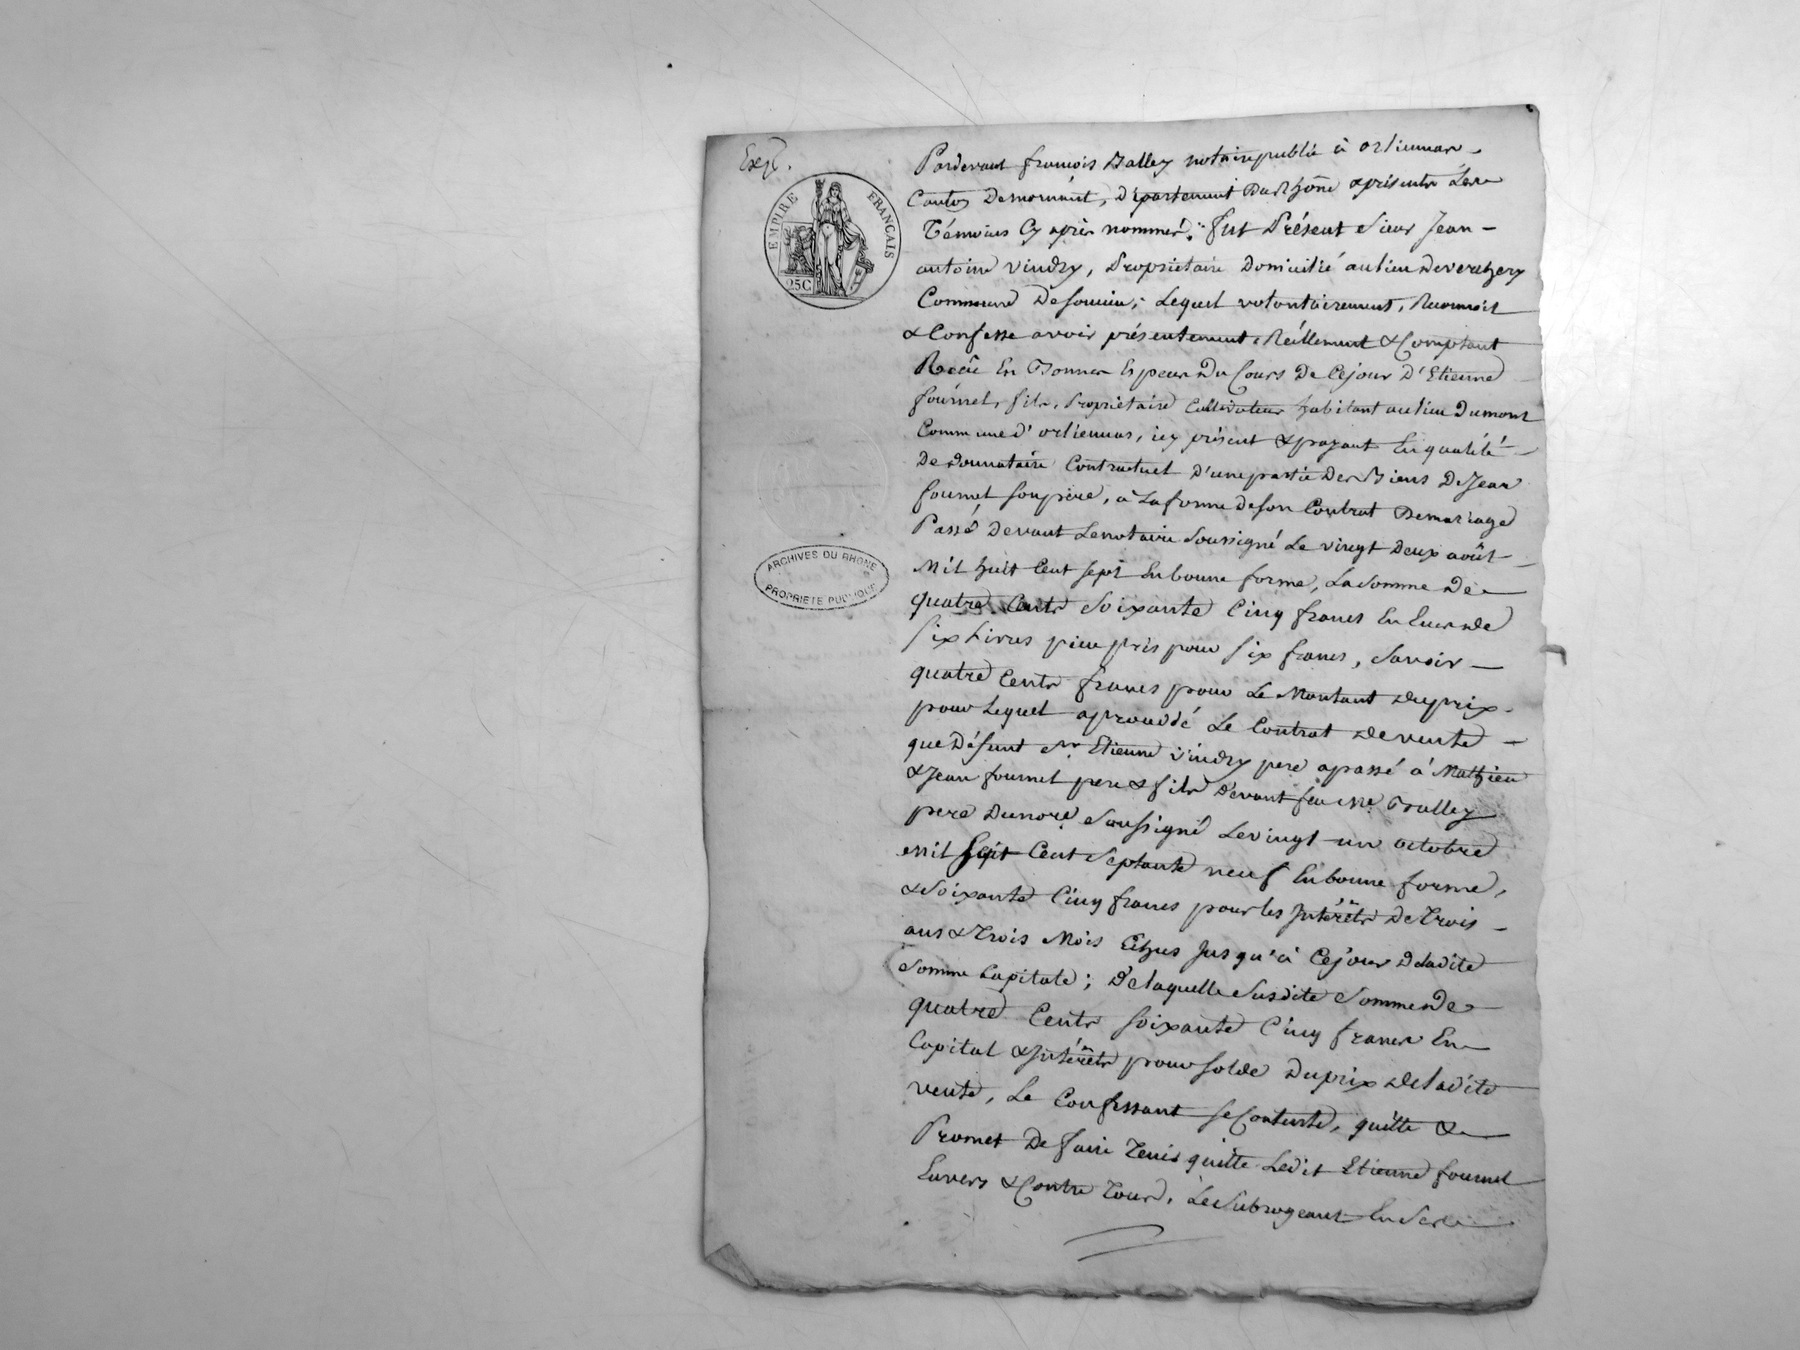 Exp.
EMPIRE FRANCAIS
25C
ARCHIVES DU RHONE
PROPRIETE PUBLIQUE
Pardevant françois Balley notaire public à orliennas
Canton De mornant, Département Du Rhône & présents Les
Témoins Cy après nommés; fut Présent Sieur Jean
antoine Vindry, Propriétaire Domicilié au lieu de verchery
Commune De Soucieu; Lequel volontairement, Reconnoit
& Confesse avoir présentement, Réellement & Comptant
Recû En Bonnes Espèces Du Cours De Cejour D'Etienne
fournel, fils, Propriétaire Cultivateur habitant au lieu Dumont
Commune d'orliennas, icy présent & payant En qualité
De donnataire Contractuel D'une partie Des Biens De Jean
fournel Son père, à La forme De Son Contrat De mariage
Passé Devant Le notaire Soussigné Le vingt Deux août
Mil huit Cent Sept En bonne forme, La Somme De
quatre Cents Soixante Cinq francs En Ecus de
Six Livres pièce pris pour Six francs, Savoir
quatre Cents francs pour Le Montant du prix
pour Lequel a procédé Le Contrat de vente
que Défunt Sr Etienne Vindry pere a passé à Mathieu
& Jean fournel pere & fils Devant feu Me Balley
pere Du nore Soussigné Le vingt un octobre
Mil Sept Cent Septante neuf En bonne forme,
& Soixante Cinq francs pour les Intérêts De Trois
ans & Trois Mois Echus Jusqu'à Cejour De ladite
Somme Capitale; De laquelle Susdite Somme de
quatre Cents Soixante Cinq francs En
Capital & Intérêts pour Solde Du prix de ladite
vente, Le Confessant Se Contente, quitte &
Promet De faire Tenir quitte Ledit Etienne fournel
Envers & Contre Tous, Le Subrogeant En Ses